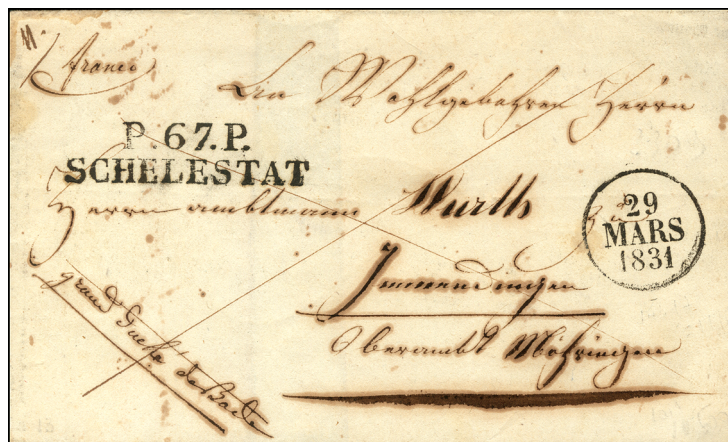 franco
An Wohlgebohren Herrn
P.67.P.
SCHELESTAT
Herrn ambtmann Wurth
29
MARS
1831
Immendingen
Oberambt Möhringen
grand Duché de Bade